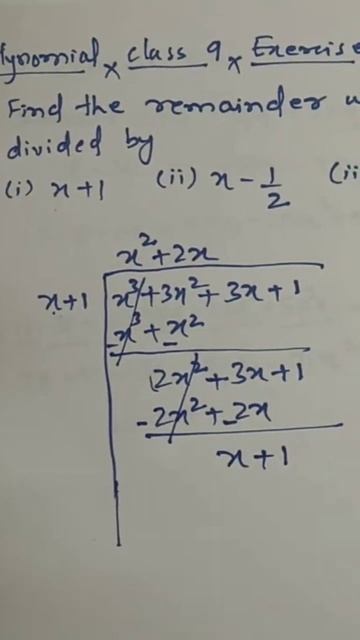 lynomial x class 9 x Exercise
Find the remainder
divided by
(i) x+1 (ii) x - 1/2 (ii
x² + 2x
x+1 x³ + 3x² + 3x + 1
-x³ + -x²
2x² + 3x + 1
-2x² + -2x
x + 1